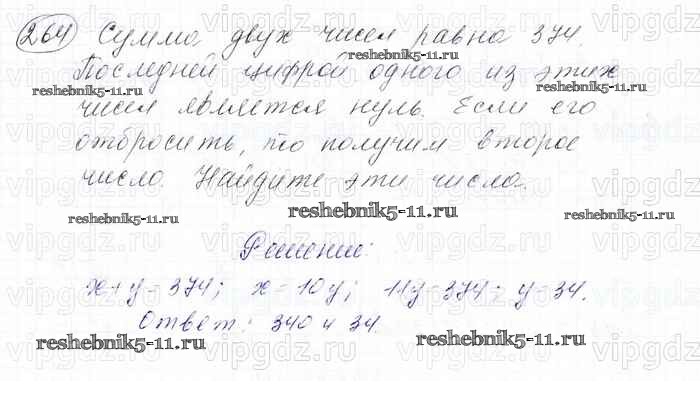 264 Сумма двух чисел равна 374.
reshebnik5-11.ru
Последней цифрой одного из этих
reshebnik5-11.ru reshebnik5-11.ru
чисел является нуль. Если его
отбросить, то получим второе
число. Найдите эти числа.
reshebnik5-11.ru reshebnik5-11.ru reshebnik5-11.ru
Решение:
x+y=374; x=10y; 11y=374; y=34.
Ответ: 340 и 34.
reshebnik5-11.ru reshebnik5-11.ru